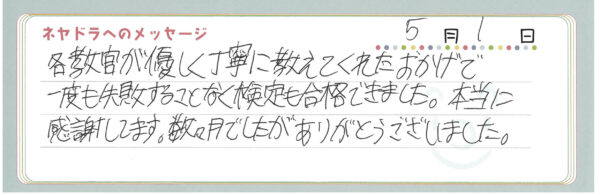 ネヤドラへのメッセージ 5月1日
各教官が優しく丁寧に教えてくれたおかげで
一度も失敗することなく検定も合格できました。本当に
感謝してます。数ヶ月でしたがありがとうございました。